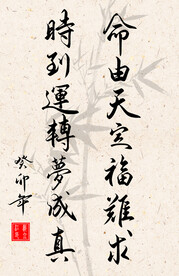 命由天定福難求
時到運轉夢成真
癸卯年